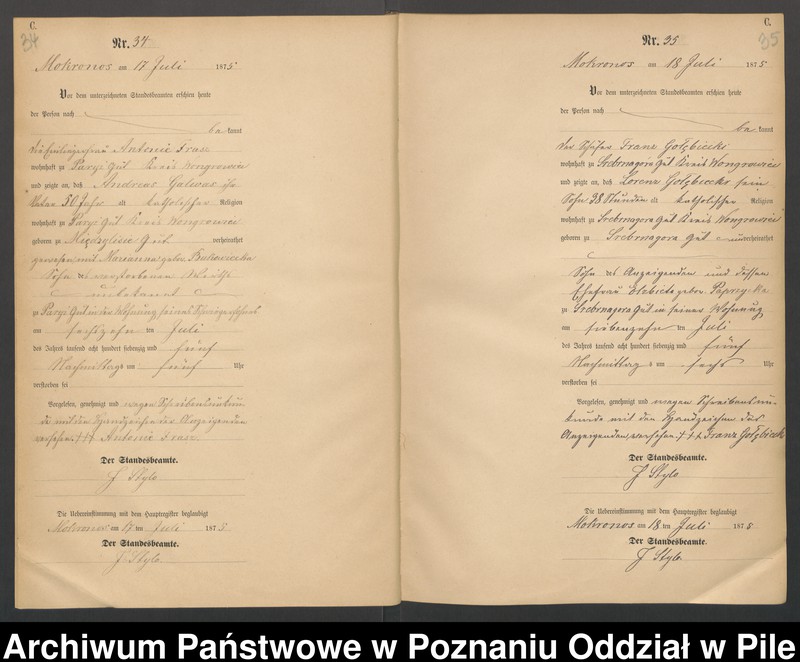 C.
34
Nr. 34
Mokronos am 17 Juli 1875
Vor dem unterzeichneten Standesbeamten erschien heute
der Person nach
be kannt
Antonie Frasz
wohnhaft zu Paryż Gut Kreis Wongrowiec
und zeigte an, daß Andreas Galwas ihr
Vater 50 Jahr alt katholischer Religion
wohnhaft zu Paryż Gut Kreis Wongrowiec
geboren zu Gut verheirathet
gewesen mit Marianna gebor.
Sohn des verstorbenen
unbekannt
zu Paryż Gut in der Wohnung seines
am sechszehn ten Juli
des Jahres tausend acht hundert siebenzig und fünf
Nachmittags um fünf Uhr
verstorben sei
Vorgelesen, genehmigt und wegen Schreibensunkun-
de mit den Handzeichen der Anzeigenden
versehen. +++ Antonie Frasz
Der Standesbeamte.
J Stylo
Die Uebereinstimmung mit dem Hauptregister beglaubigt
Mokronos am 17 ten Juli 1875
Der Standesbeamte.
J Stylo
C.
35
Nr. 35
Mokronos am 18 Juli 1875
Vor dem unterzeichneten Standesbeamten erschien heute
der Person nach
be kannt
der Schäfer Franz
wohnhaft zu Srebrnagora Gut Kreis Wongrowiec
und zeigte an, daß Lorenz sein
Sohn 38 Stunden alt katholischer Religion
wohnhaft zu Srebrnagora Gut Kreis Wongrowiec
geboren zu Srebrnagora Gut unverheirathet
Sohn des Anzeigenden und dessen
Ehefrau Elzbieta gebor.
zu Srebrnagora Gut in seiner Wohnung
am siebenzehn ten Juli
des Jahres tausend acht hundert siebenzig und fünf
Nachmittag s um sechs Uhr
verstorben sei
Vorgelesen, genehmigt und wegen Schreibensun-
kunde mit den Handzeichen des
Anzeigenden versehen. +++ Franz
Der Standesbeamte.
J Stylo
Die Uebereinstimmung mit dem Hauptregister beglaubigt
Mokronos am 18 ten Juli 1875
Der Standesbeamte.
J Stylo
Archiwum Państwowe w Poznaniu Oddział w Pile